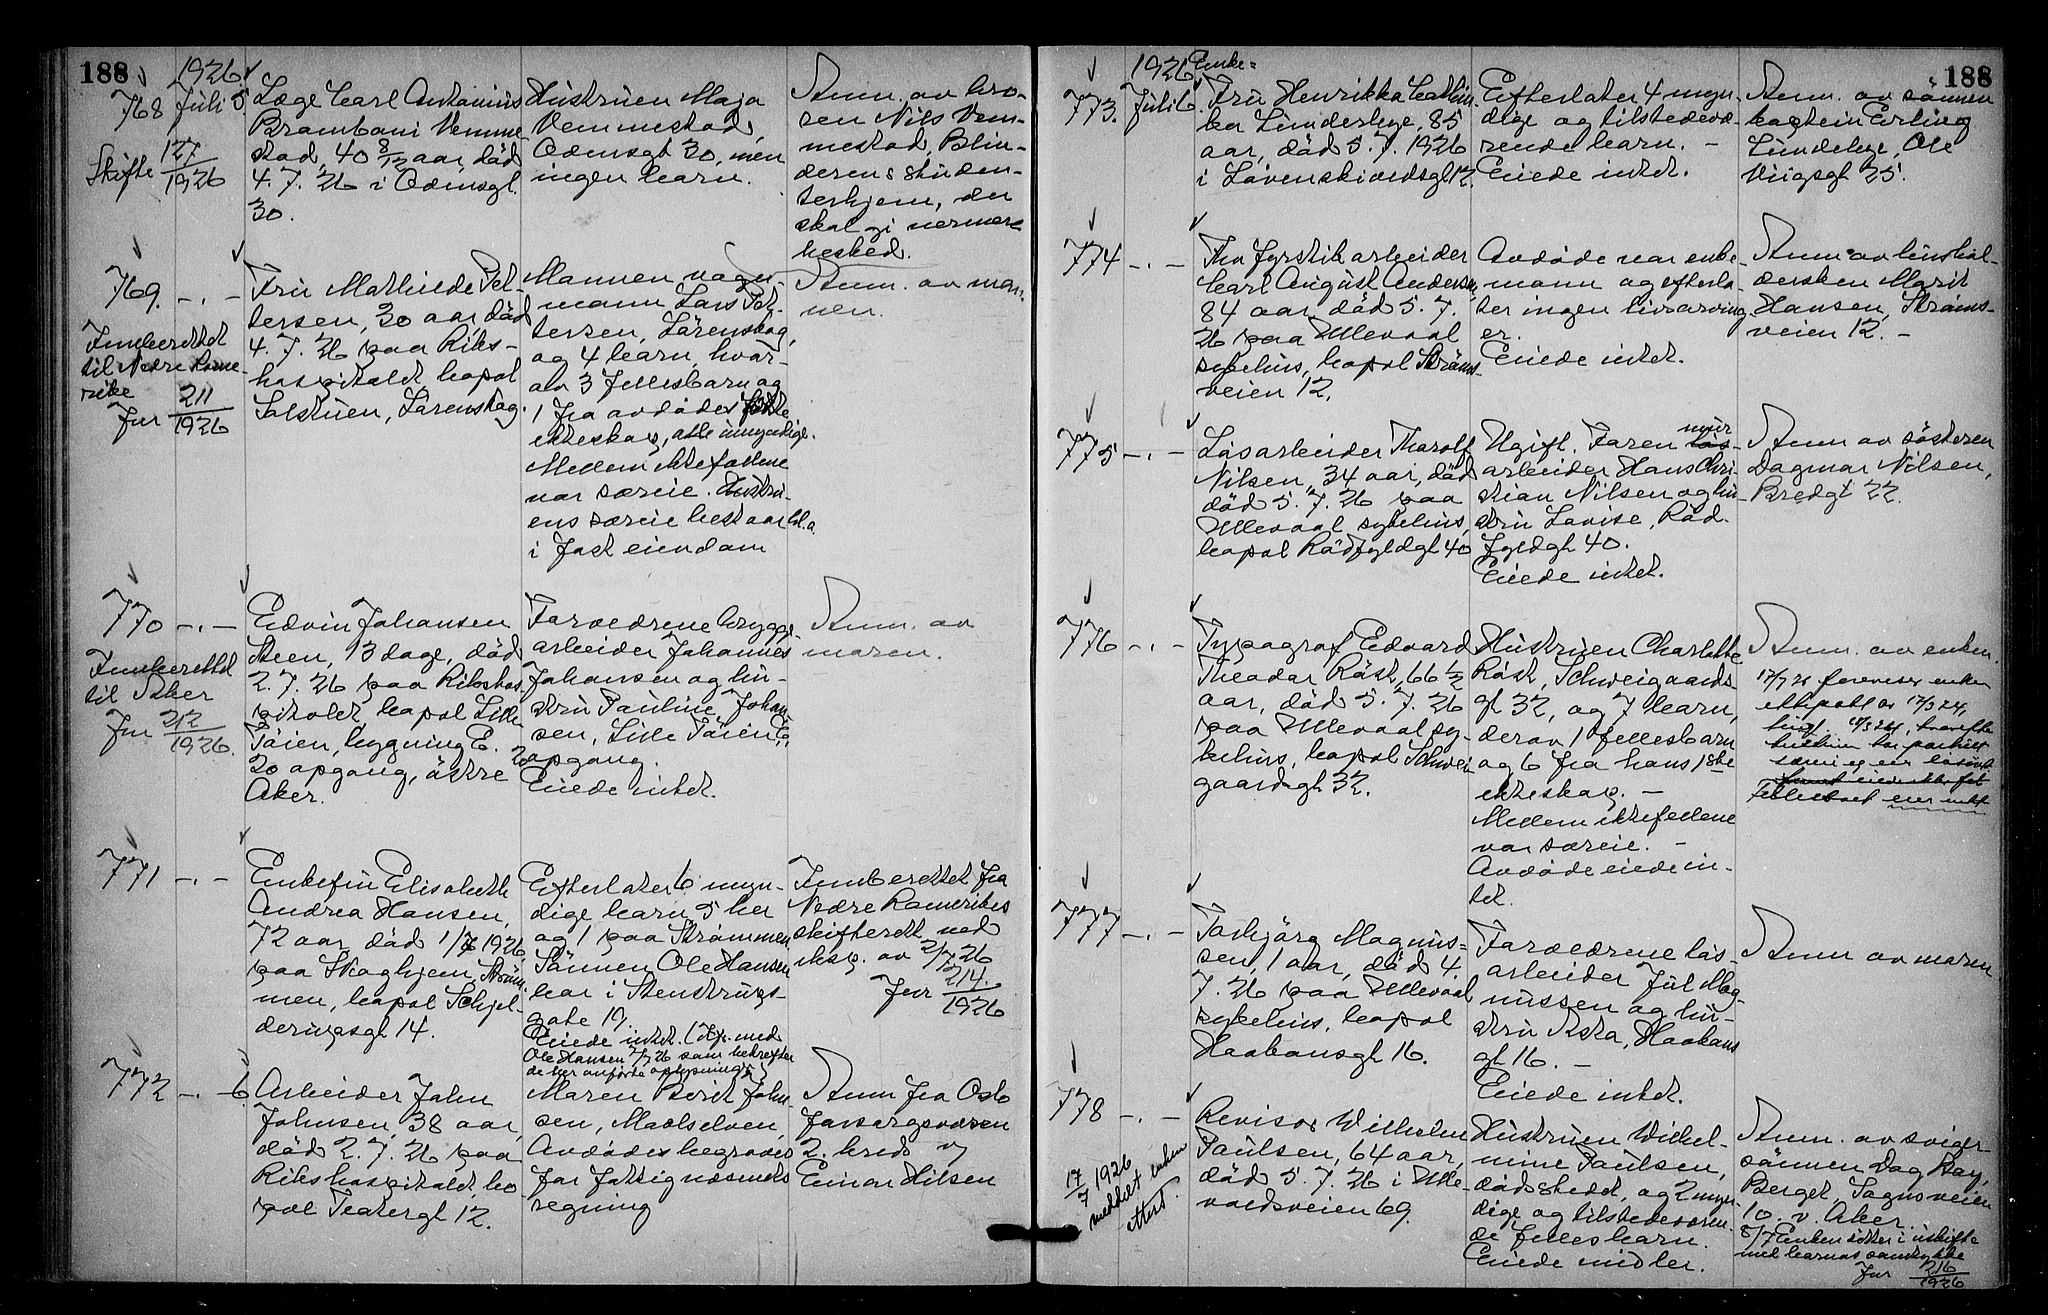 188
1926
768 Juli 5.
Skifte 127/1926
Læge Carl Antonius
Brambani Vemme
stad, 40 8/12 aar, død
4. 7. 26 i Odinsgt.
30.
Hustruen Maja
Vemmestad,
Odinsgt 30, men
ingen barn.
Anm. av bro-
ren Nils Vem-
mestad, Blin-
derens studen-
terhjem, der
skal gi nærmere
besked.
769. -.-
Innberettet
til Nedre Rome-
rike
Jnr 211/1926
Fru Mathilde Pet-
tersen, 30 aar, død
4. 7. 26 paa Riks-
hospitalet, bopæl
Solstuen, Lørenskog.
Mannen vogn-
mann Lars Pet-
tersen, Lørenskog,
og 4 barn, hvor-
av 3 fellesbarn og
1 fra avdødes første
ekteskap, alle umyndige.
Mellem ektefællene
var særeie. Hustru-
ens særeie bestaar bl.a.
i fast eiendom
Anm. av man-
nen.
770 -.-
Innberettet
til Aker
Jnr 212/1926.
Edvin Johansen
Steen, 13 dage, død
2. 7. 26 paa Rikshos
pitalet, bopæl Lille
Tøien, bygning E.
20 opgang, østre
Aker.
Forældrene brygge
arbeider Johannes
Johansen og hu-
stru Pauline Johan
sen, Lille Tøien E,
20 opgang.
Eiede intet.
Anm. av
moren.
771 -.-
Enkefru Elisabeth
Andrea Hansen,
72 aar, død 1/7 1926
paa Skoghjem, Strøm-
men, bopæl Schjel-
derupsgt 14.
Efterlater 6 myn-
dige barn, 5 her
og 1 paa Strømmen.
Sønnen Ole Hansen
bor i Stenstrups-
gate 19.
Eiede intet. (Kf. med
Ole Hansen 7/7 26 som bekrefter
de her anførte oplysninger)
Innberettet fra
Nedre Romerikes
skifterett ved
eksp. av 2/7 26
Jnr 214./1926
772 -.- 6.
Arbeider John
Johnsen, 38 aar,
død 2. 7. 26 paa
Rikshospitalet, bo
pæl Teatergt 12.
Moren Berit John-
sen, Maalselven,
Avdødes begraves
for fattigvæsenets
regning
Anm fra Oslo
forsorgsvæsen
2. kreds v/
Einar Hilsen
188
1926
773. Juli 6.
Enke=
Fru Henrikke Cathin-
ka Lundebye, 85
aar, død 5. 7. 1926
i Løvenskioldsgt 12.
Efterlater 4 myn-
dige og tilstedevæ-
rende barn. -
Eiede intet.
Anm. av sønnen
kaptein Erling
Lundebye, Ole
Vigsgt 25.
774 -.-
Fhv fyrstikarbeider
Carl August Anderson,
84 aar, død 5. 7.
26 paa Ullevaal
sykehus, bopæl Strøms-
veien 12.
Avdøde var enke
mann og efterla-
ter ingen livsarving-
er.
Eiede intet.
Anm. av hushol-
dersken Marit
Hansen, Strøms-
veien 12. -
775 -.-
Løsarbeider Thorolf
Nilsen, 34 aar, død
død 5. 7. 26 paa
Ullevaal sykehus,
bopæl Rødfyldgt 40
Ugift. Faren mur
arbeider Hans Chri-
stian Nilsen og hu-
stru Lovise, Rød-
fyldgt 40.
Eiede intet.
Anm. av søsteren
Dagmar Nilsen,
Bredgt 22.
776 -.-
Typograf Edvard
Theodor Røst, 66 1/2
aar, død 5. 7. 26
paa Ullevaal sy-
kehus, bopæl Schwei-
gaardsgt 32.
Hustruen Charlotte
Røst, Schweigaards-
gt 32, og 7 barn,
derav 1 fellesbarn
og 6 fra hans 1ste
ekteskap. -
Mellem ektefellene
var særeie. -
Avdøde eiede in-
tet.
Anm. av enken.
17/7 26 foreviser enken
ektepakt av 17/3 24,
tingl. 18/3 24, hvorefter
hustruen har
særeie og
Fellesboet eier intet
777 -.-
Torbjørg Magnus-
sen, 1 aar, død 4.
7. 26 paa Ullevaal
sykehus, bopæl
Haakonsgt 16.
Forældrene løs-
arbeider Jul Mag-
nussen og hu-
stru Asta, Haakons
gt 16. -
Eiede intet.
Anm av moren
778 -.-
17/7 1926
meddelt enken
attest.
Revisor Wilhelm
Paulsen, 64 aar,
død 5. 7. 26 i Ulle-
vaalsveien 69.
Hustruen Wilhel-
mine Paulsen,
dødsstedet, og 2 myn-
dige og tilstedeværen-
de fellesbarn.
Eiede midler.
Anm. av sviger-
sønnen Dag Ray,
Berget, Sognsveien
10. v. Aker.
8/7 Enken sitter i uskifte
med barnas samtykke
Jnr 216/1926